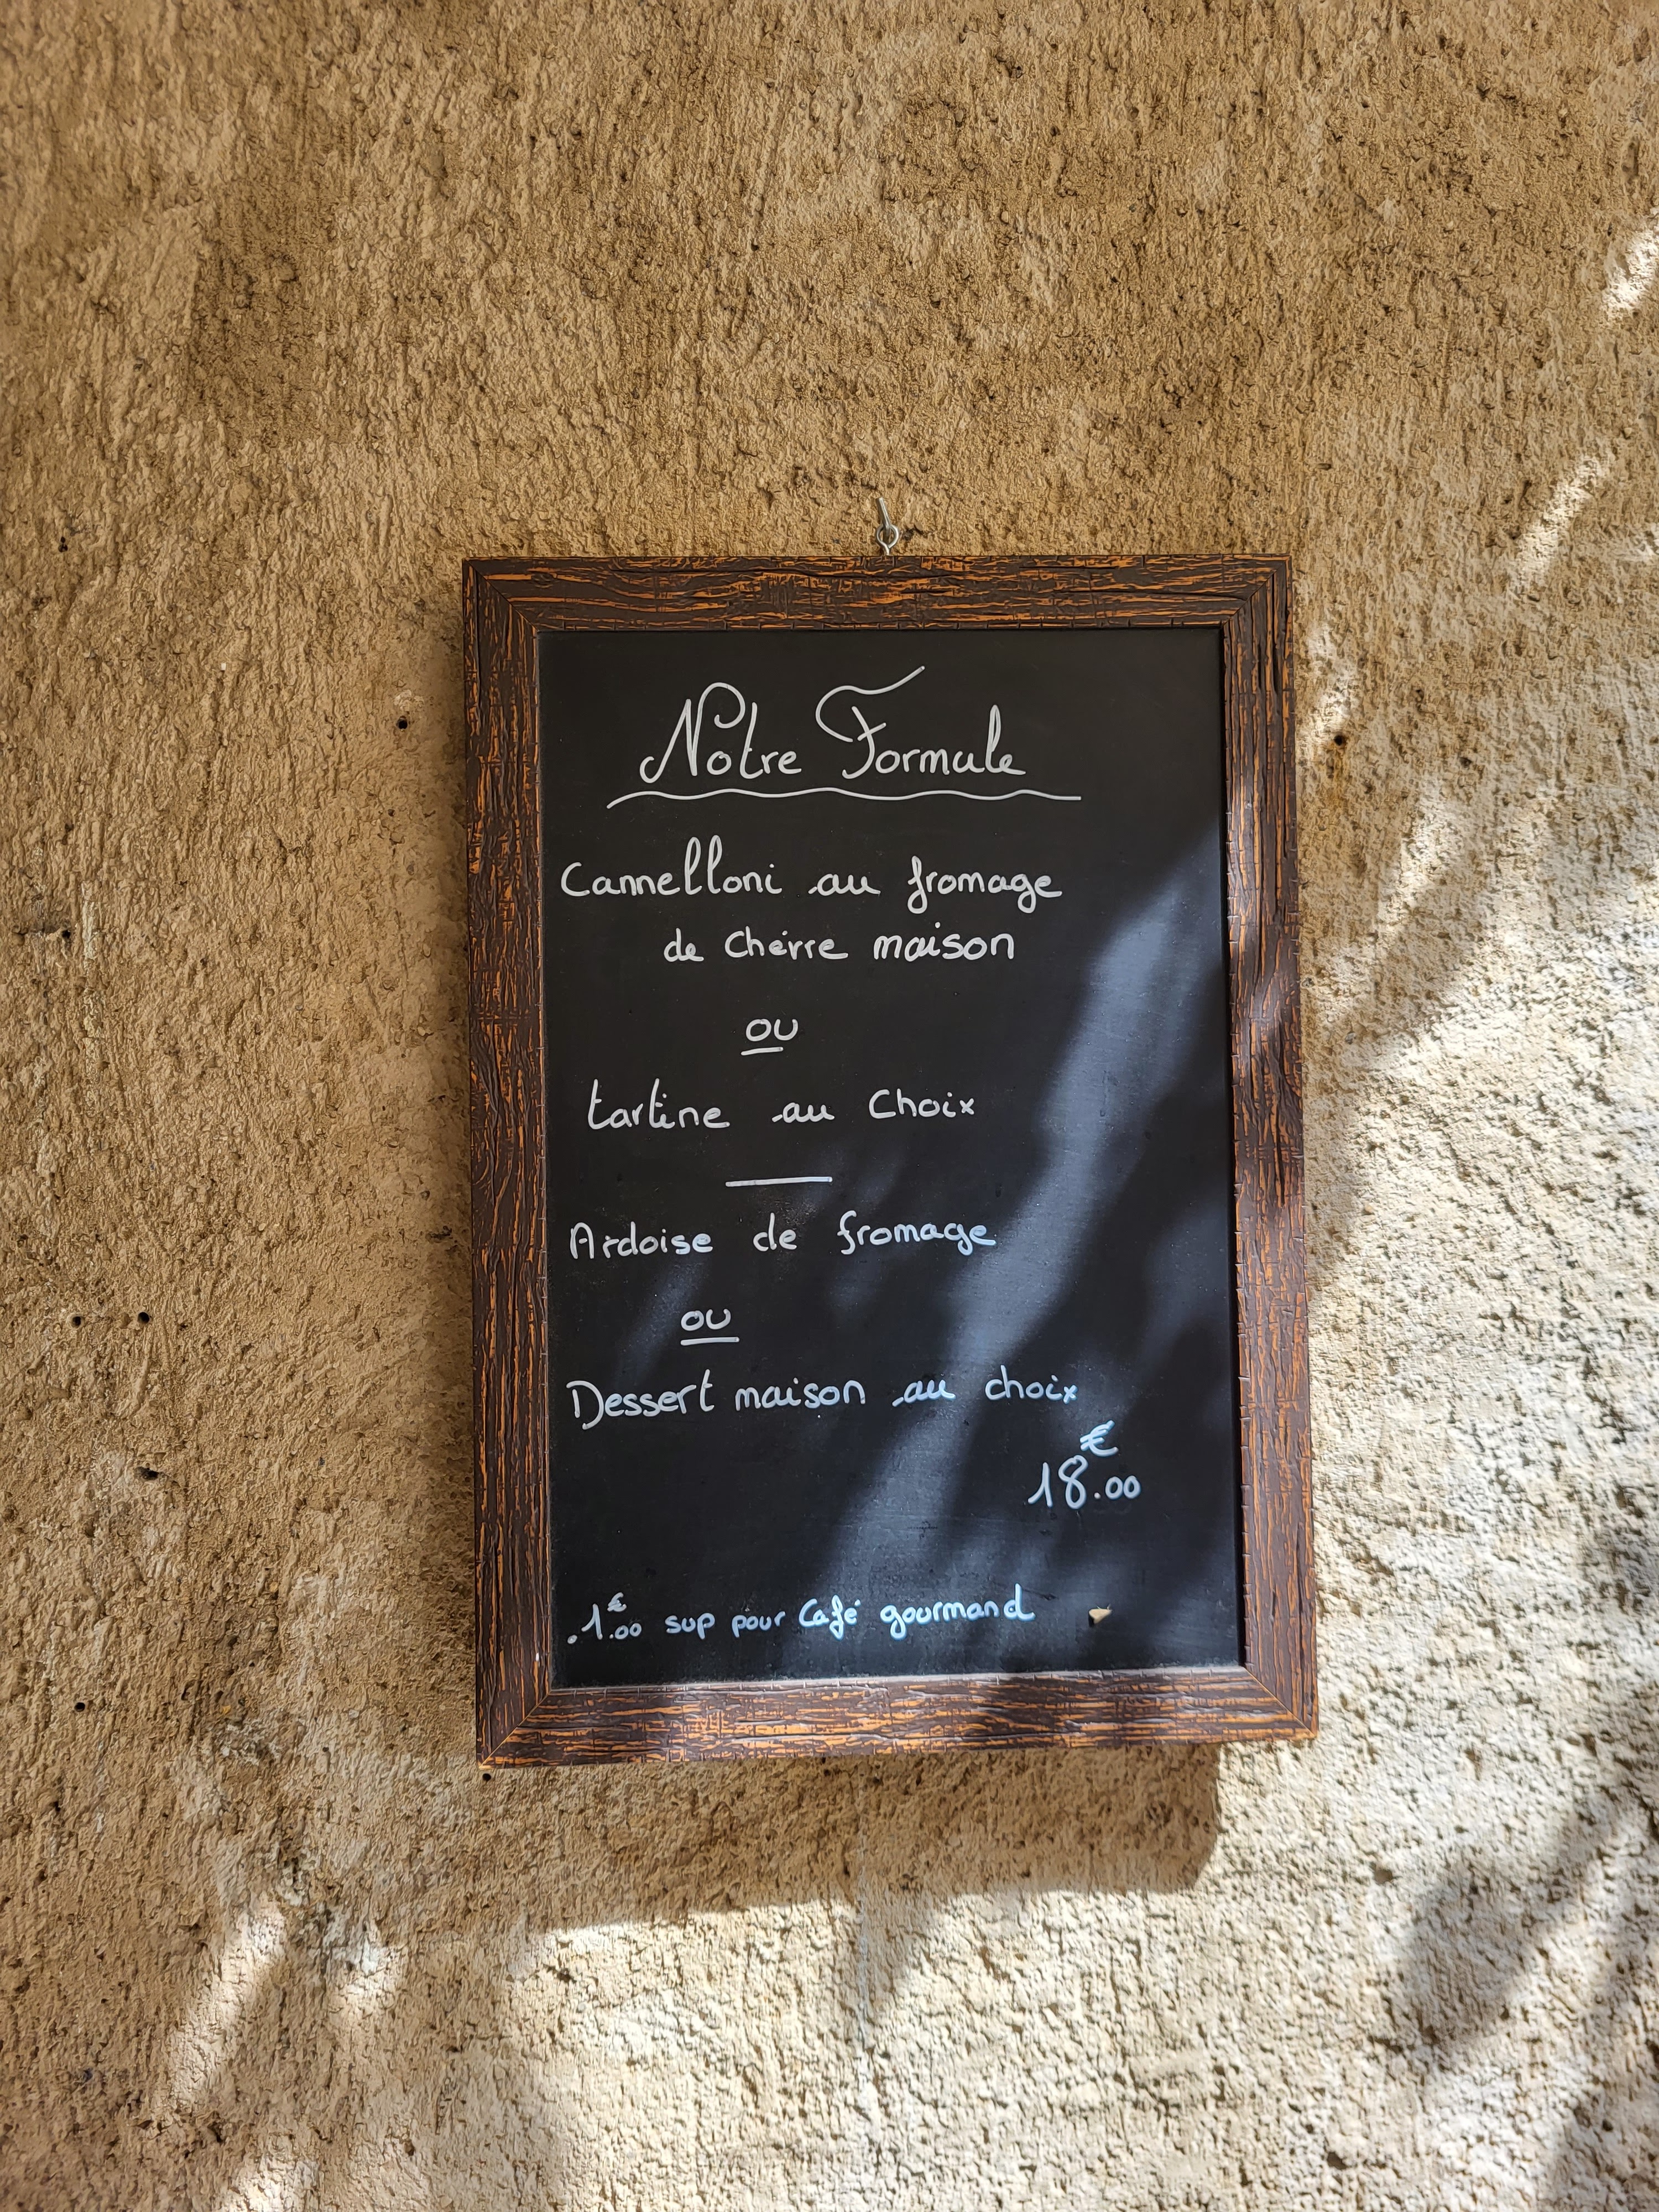 Notre Formule
Cannelloni au fromage
de Chèvre maison
ou
tartine au Choix
Ardoise de fromage
ou
Dessert maison au choix
€
18.00
.1€.00 sup pour Café gourmand